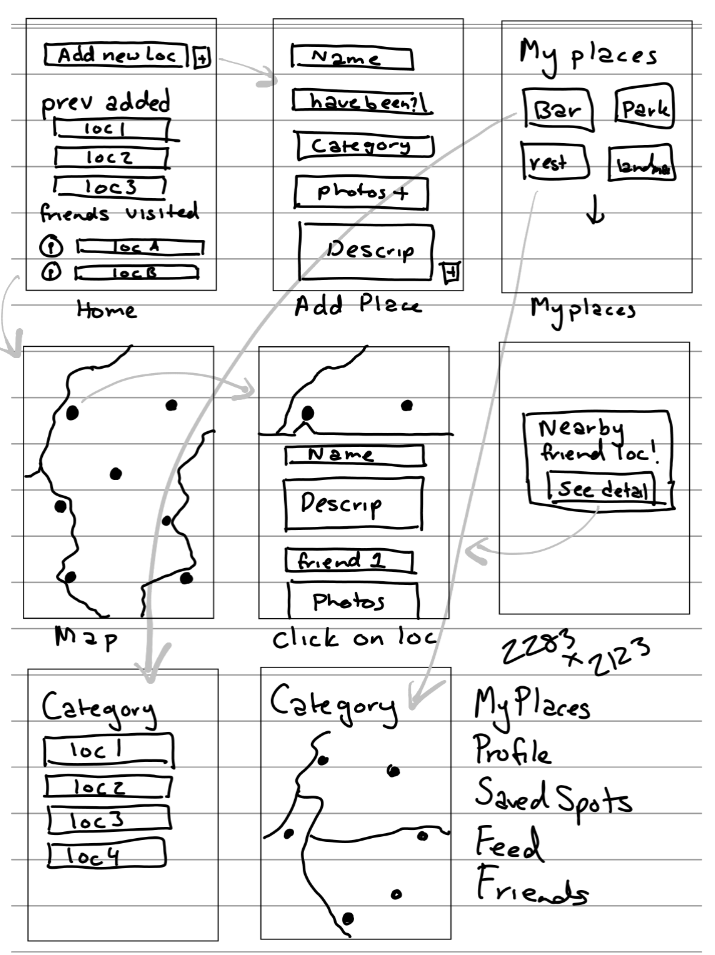 Add new loc +
prev added
loc 1
loc 2
loc 3
friends visited
loc A
loc B
Home
Name
have been?
Category
photos +
Descrip
+
Add Place
My places
Bar
Park
rest
My places
Map
Name
Descrip
friend 1
Photos
Click on loc
Nearby
friend loc!
See detail
2283
x 2123
Category
loc 1
loc 2
loc 3
loc 4
Category
My Places
Profile
Saved Spots
Feed
Friends